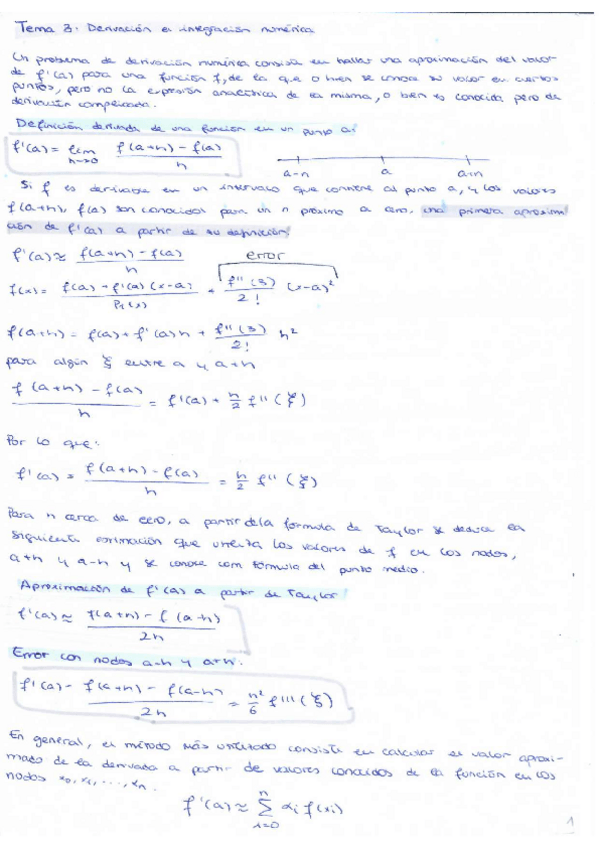 Tema 3: Derivación e integración numérica
Un problema de derivación numérica consiste en hallar una aproximación del valor
de f'(a) para una función f, de la que o bien se conoce su valor en ciertos
puntos, pero no la expresión analítica de la misma, o bien es conocida pero de
derivación complicada.
Definición derivada de una función en un punto a:
f'(a) = lim h→0 f(a+h) - f(a) / h
a-h a a+h
Si f es derivable en un intervalo que contiene al punto a, y los valores
f(a+h), f(a) son conocidos para un h próximo a cero, una primera aproxima
ción de f'(a) a partir de su definición:
f'(a) ≈ f(a+h) - f(a) / h
error
f(x) = f(a) + f'(a) (x-a) + f''(ξ) / 2! (x-a)²
P₁(x)
f(a+h) = f(a) + f'(a) h + f''(ξ) / 2! h²
para algún ξ entre a y a+h
f(a+h) - f(a) / h = f'(a) + h/2 f''(ξ)
Por lo que:
f'(a) = f(a+h) - f(a) / h = h/2 f''(ξ)
Para h cerca de cero, a partir de la formula de Taylor se deduce la
siguiente estimación que utiliza los valores de f en los nodos,
a+h y a-h y se conoce com fórmula del punto medio.
Aproximación de f'(a) a partir de Taylor
f'(a) ≈ f(a+h) - f(a-h) / 2h
Error con nodos a-h y a+h:
f'(a) - f(a+h) - f(a-h) / 2h = h²/6 f'''(ξ)
En general, el método más utilizado consiste en calcular el valor aproxi-
mado de la derivada a partir de valores conocidos de la función en los
nodos x₀, x₁, ..., xₙ.
f'(a) ≈ Σ i=0 n αi f(xi)
1